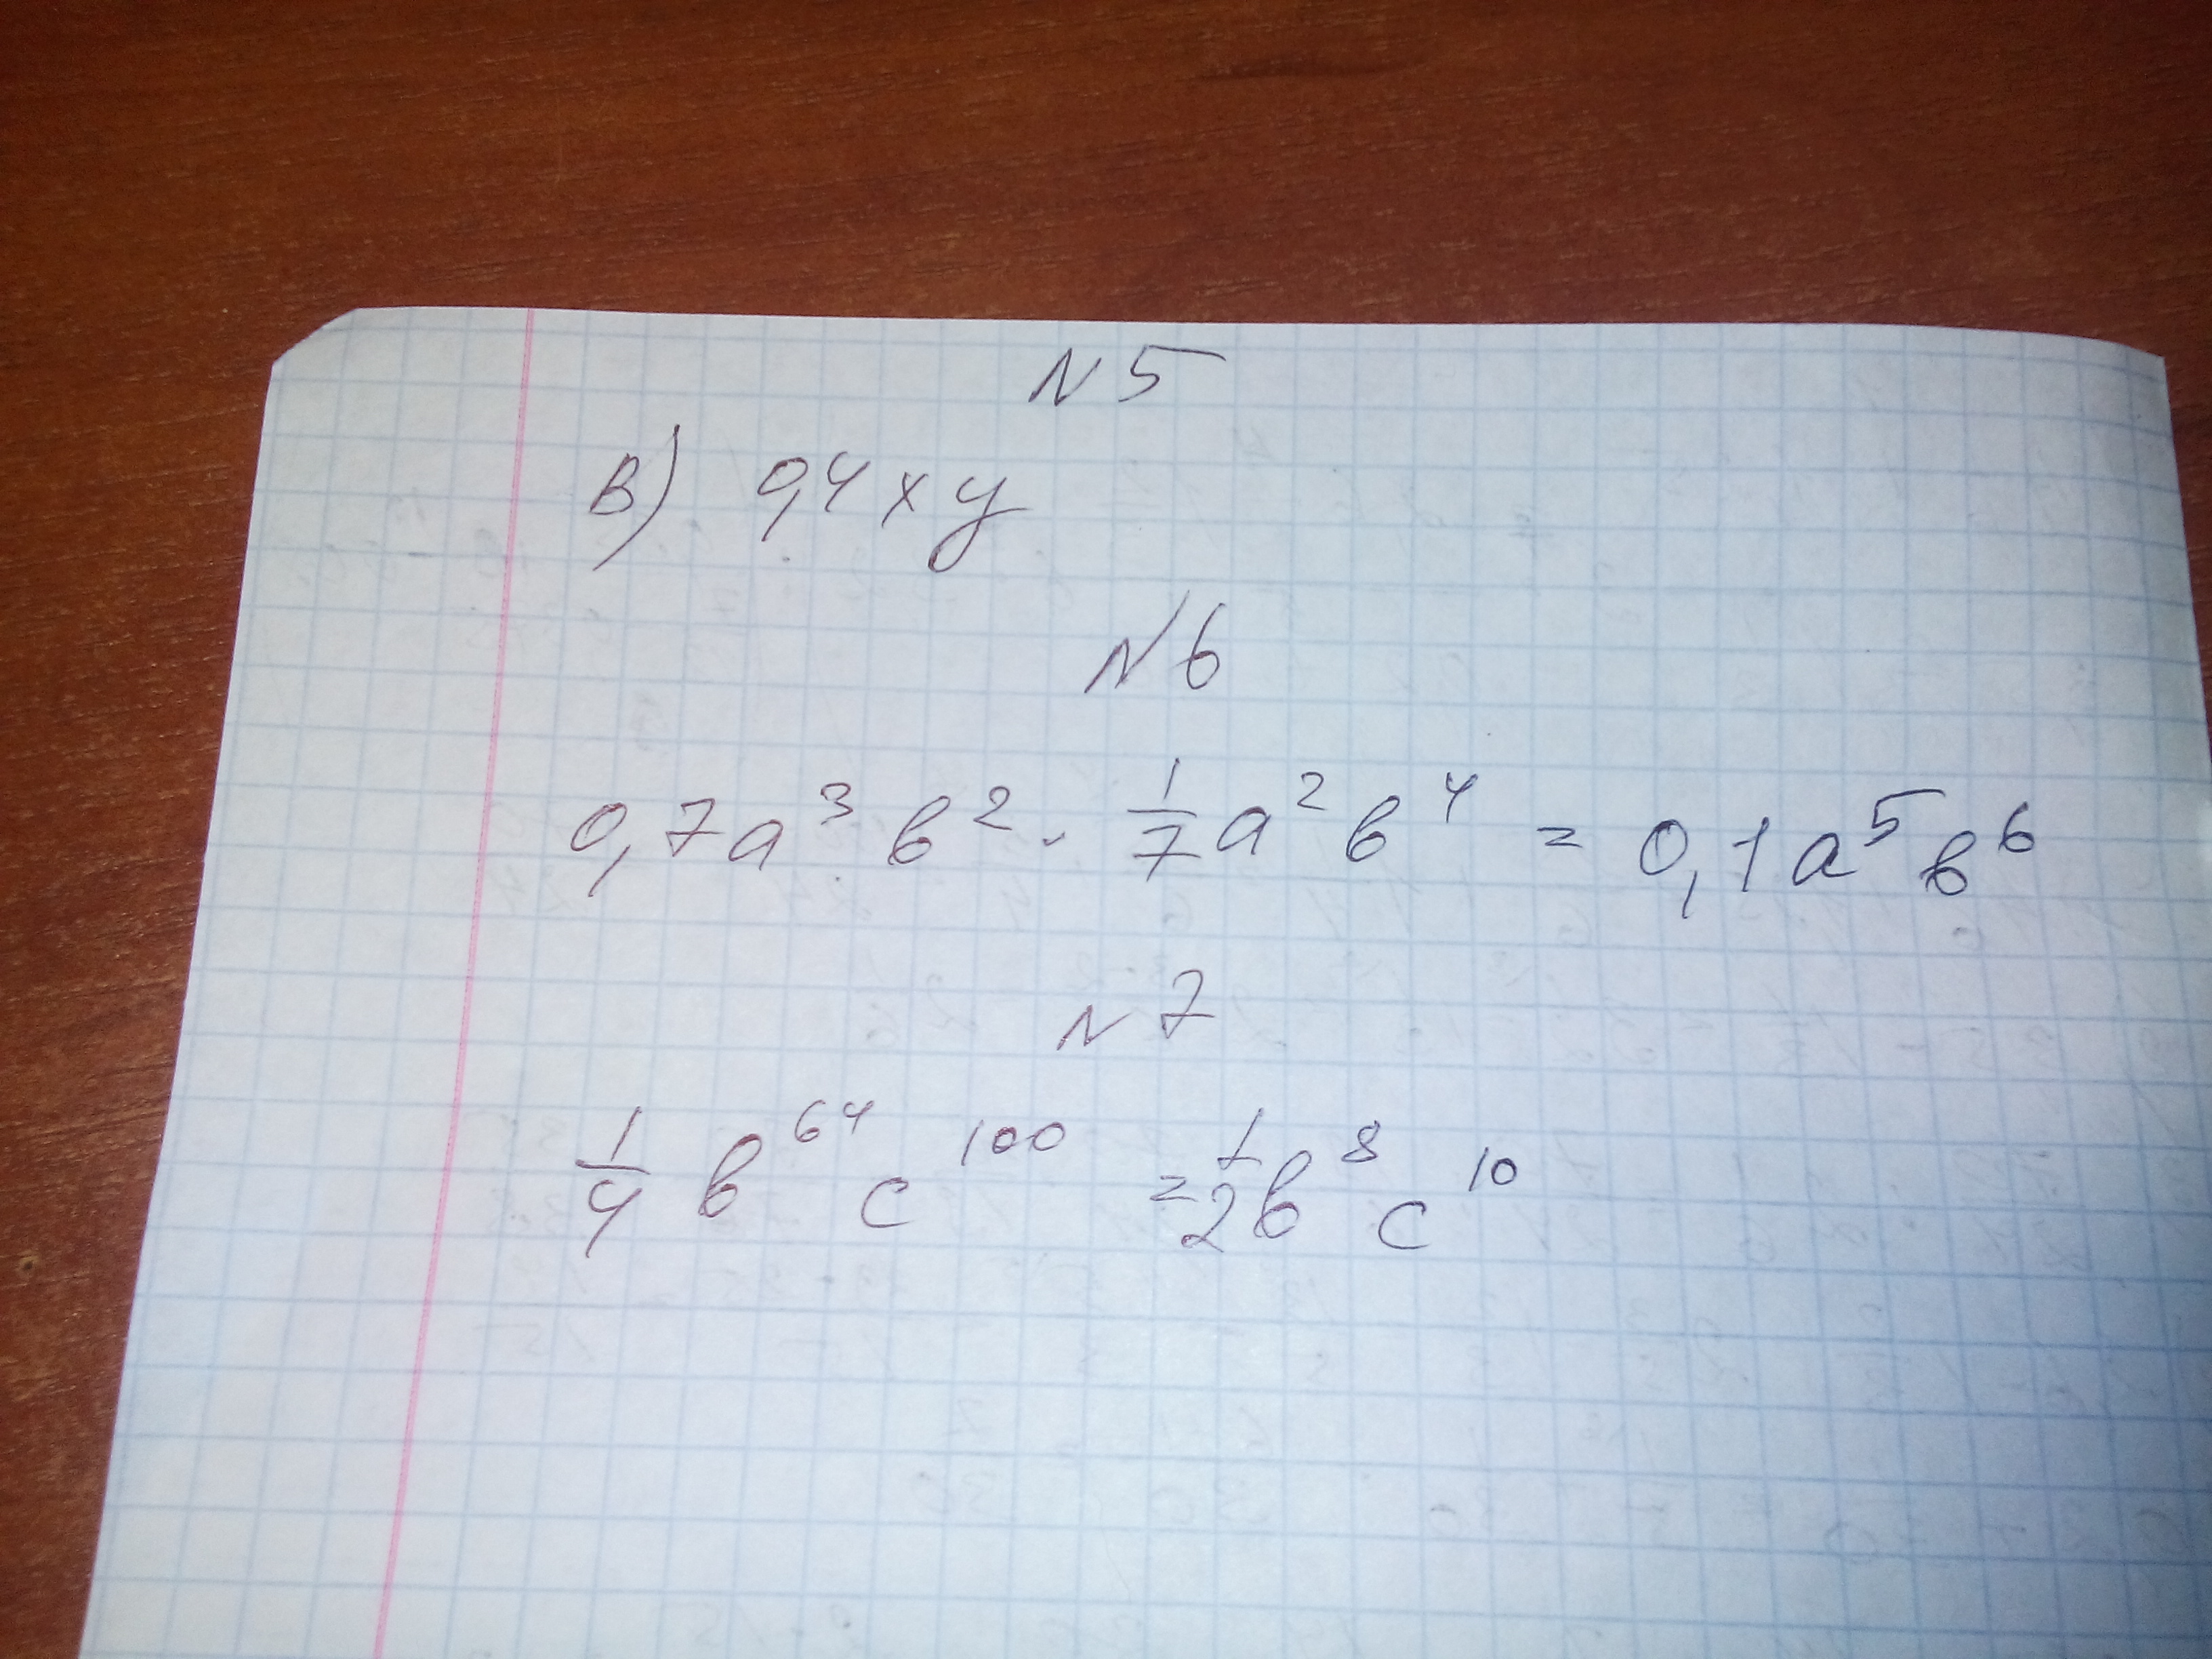 N 5
в) 0,4 x y
N 6
0,7a³ b² · 1/7 a² b⁴ = 0,1 a⁵ b⁶
N 7
1/4 b⁶⁴ c¹⁰⁰ = 1/2 b⁸ c¹⁰